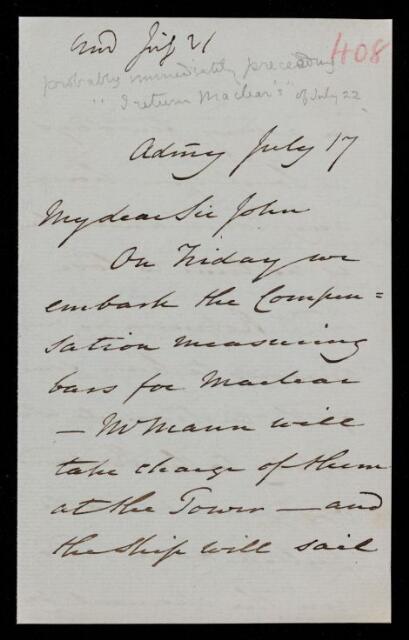 And July 21
408
probably immediately preceding
"I return Maclear's" of July 22
Admy July 17
My dear Sir John
On Friday we
embark the Compen=
sation measuring
bars for Maclear
— Mr Mann will
take charge of them
at the Tower — and
the ship will sail